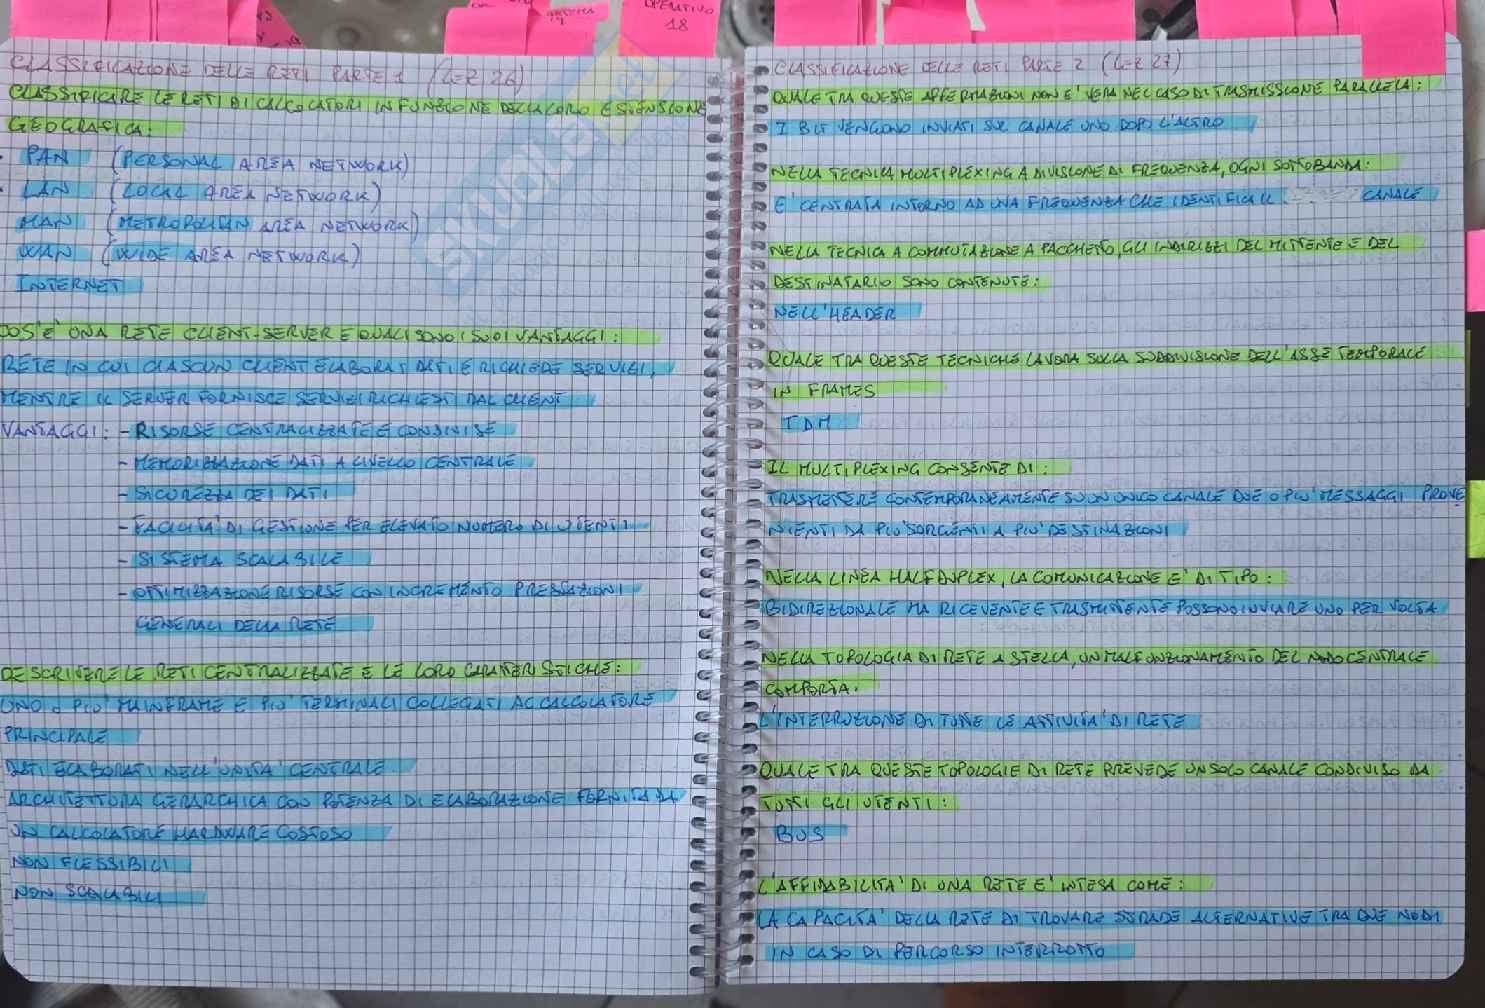 OPERATIVO
18
skuola.net
CLASSIFICAZIONE DELLE RETI PARTE 1 (LEZ 26)
CLASSIFICARE LE RETI DI CALCOLATORI IN FUNZIONE DELLA LORO ESTENSIONE
GEOGRAFICA:
PAN (PERSONAL AREA NETWORK)
LAN (LOCAL AREA NETWORK)
MAN (METROPOLITAN AREA NETWORK)
WAN (WIDE AREA NETWORK)
INTERNET
COS'E' UNA RETE CLIENT-SERVER E QUALI SONO I SUOI VANTAGGI:
RETE IN CUI CIASCUN CLIENT ELABORA I DATI E RICHIEDE SERVIZI,
MENTRE IL SERVER FORNISCE SERVIZI RICHIESTI DAL CLIENT
VANTAGGI: - RISORSE CENTRALIZZATE E CONDIVISE
- MEMORIZZAZIONE DATI A LIVELLO CENTRALE
- SICUREZZA DEI DATI
- FACILITA' DI GESTIONE PER ELEVATO NUMERO DI UTENTI
- SISTEMA SCALABILE
- OTTIMIZZAZIONE RISORSE CON INCREMENTO PRESTAZIONI
GENERALI DELLA RETE
DESCRIVERE LE RETI CENTRALIZZATE E LE LORO CARATTERISTICHE:
UNO o PIU' MAINFRAME E PIU' TERMINALI COLLEGATI AL CALCOLATORE
PRINCIPALE
DATI ELABORATI NELL'UNITA' CENTRALE
ARCHITETTURA GERARCHICA CON POTENZA DI ELABORAZIONE FORNITA DA
UN CALCOLATORE HARDWARE COSTOSO
NON FLESSIBILI
NON SCALABILI
CLASSIFICAZIONE DELLE RETI PARTE 2 (LEZ 27)
QUALE TRA QUESTE AFFERMAZIONI NON E' VERA NEL CASO DI TRASMISSIONE PARALLELA:
I BIT VENGONO INVIATI SUL CANALE UNO DOPO L'ALTRO
NELLA TECNICA MULTIPLEXING A DIVISIONE DI FREQUENZA, OGNI SOTTOBANDA:
E' CENTRATA INTORNO AD UNA FREQUENZA CHE IDENTIFICA IL CANALE
NELLA TECNICA A COMMUTAZIONE A PACCHETTO, GLI INDIRIZZI DEL MITTENTE E DEL
DESTINATARIO SONO CONTENUTE:
NELL'HEADER
QUALE TRA QUESTE TECNICHE LAVORA SULLA SUDDIVISIONE DELL'ASSE TEMPORALE
IN FRAMES
TDM
IL MULTIPLEXING CONSENTE DI:
TRASMETTERE CONTEMPORANEAMENTE SU UN UNICO CANALE DUE O PIU' MESSAGGI PROVE
NIENTI DA PIU' SORGENTI A PIU' DESTINAZIONI
NELLA LINEA HALF DUPLEX, LA COMUNICAZIONE E' DI TIPO:
BIDIREZIONALE MA RICEVENTE E TRASMITTENTE POSSONO INVIARE UNO PER VOLTA
NELLA TOPOLOGIA DI RETE A STELLA, UN MALFUNZIONAMENTO DEL NODO CENTRALE
COMPORTA:
L'INTERRUZIONE DI TUTTE LE ATTIVITA' DI RETE
QUALE TRA QUESTE TOPOLOGIE DI RETE PREVEDE UN SOLO CANALE CONDIVISO DA
TUTTI GLI UTENTI:
BUS
L'AFFIDABILITA' DI UNA RETE E' INTESA COME:
LA CAPACITA' DELLA RETE DI TROVARE STRADE ALTERNATIVE TRA DUE NODI
IN CASO DI PERCORSO INTERROTTO